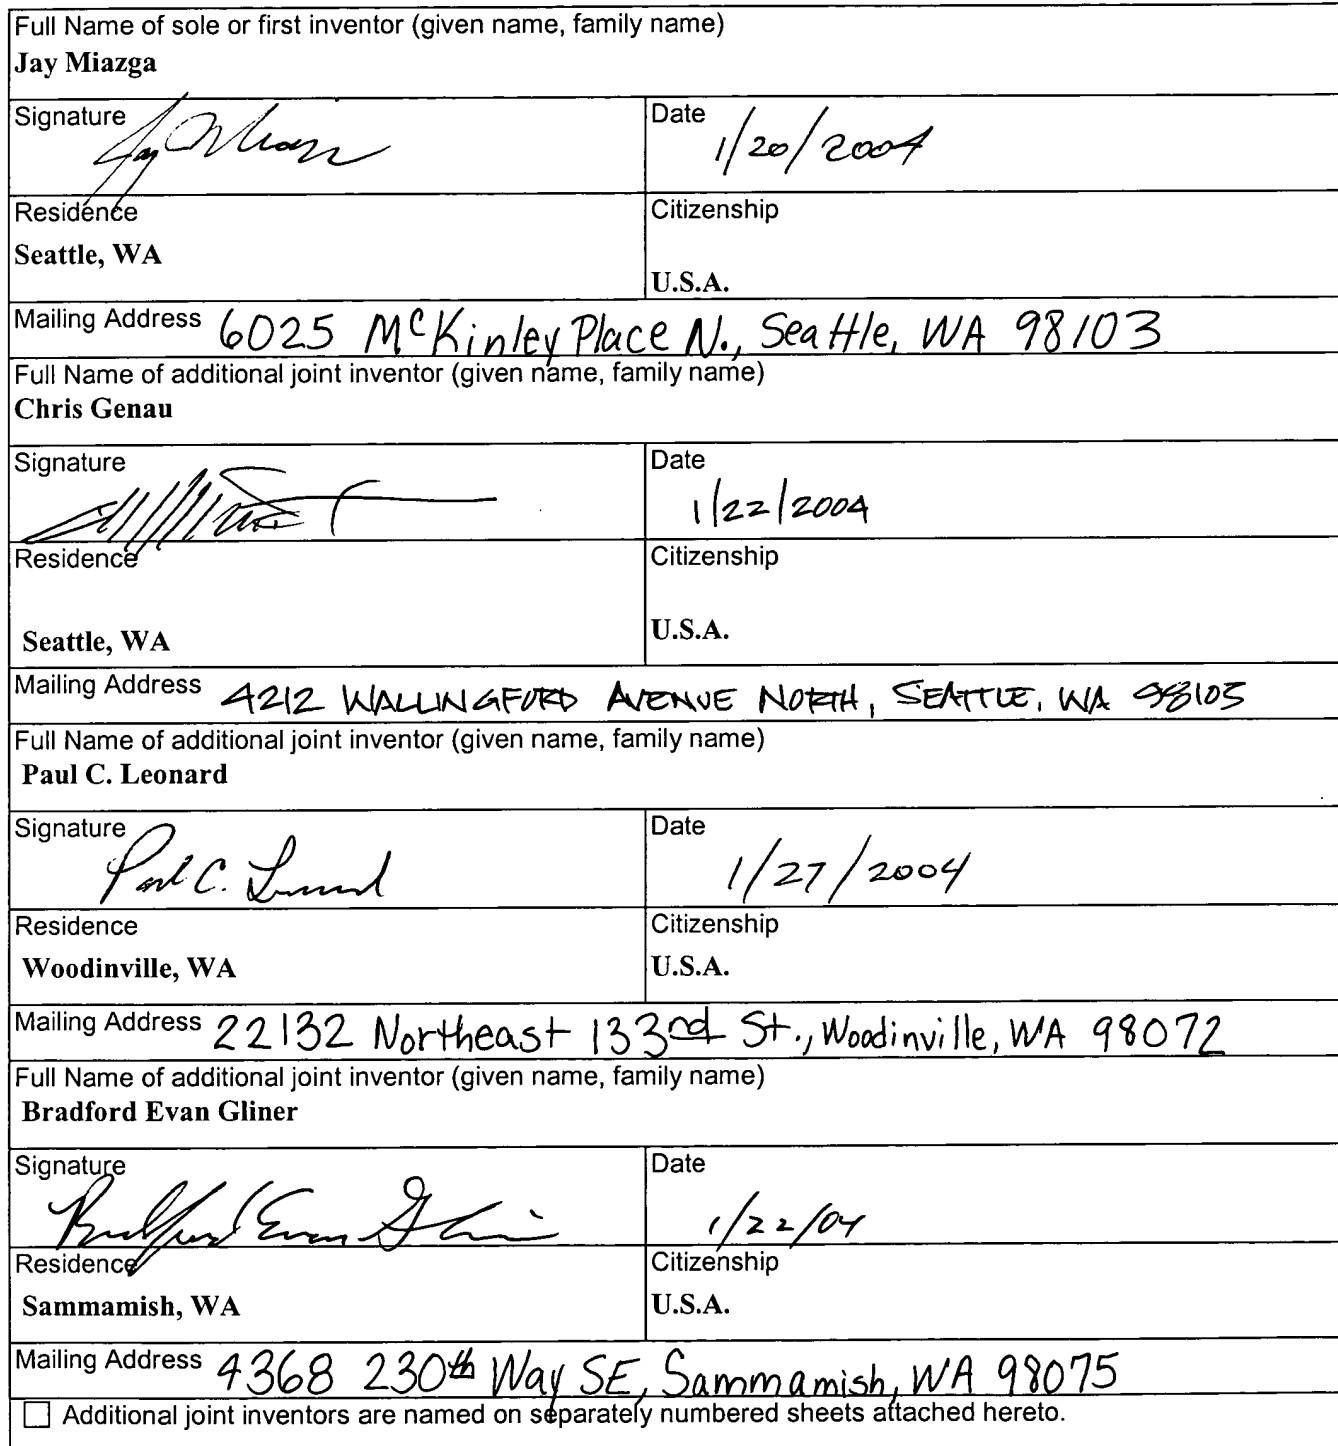 Full Name of sole or first inventor (given name, family name)
Jay Miazga
Signature
Date
1/20/2004
Residence
Seattle, WA
Citizenship
U.S.A.
Mailing Address 6025 McKinley Place N., Seattle, WA 98103
Full Name of additional joint inventor (given name, family name)
Chris Genau
Signature
Date
1/22/2004
Residence
Seattle, WA
Citizenship
U.S.A.
Mailing Address 4212 WALLINGFORD AVENUE NORTH, SEATTLE, WA 98103
Full Name of additional joint inventor (given name, family name)
Paul C. Leonard
Signature Paul C. Leonard
Date
1/27/2004
Residence
Woodinville, WA
Citizenship
U.S.A.
Mailing Address 22132 Northeast 133rd St., Woodinville, WA 98072
Full Name of additional joint inventor (given name, family name)
Bradford Evan Gliner
Signature
Bradford Evan Gliner
Date
1/22/04
Residence
Sammamish, WA
Citizenship
U.S.A.
Mailing Address 4368 230th Way SE, Sammamish, WA 98075
Additional joint inventors are named on separately numbered sheets attached hereto.